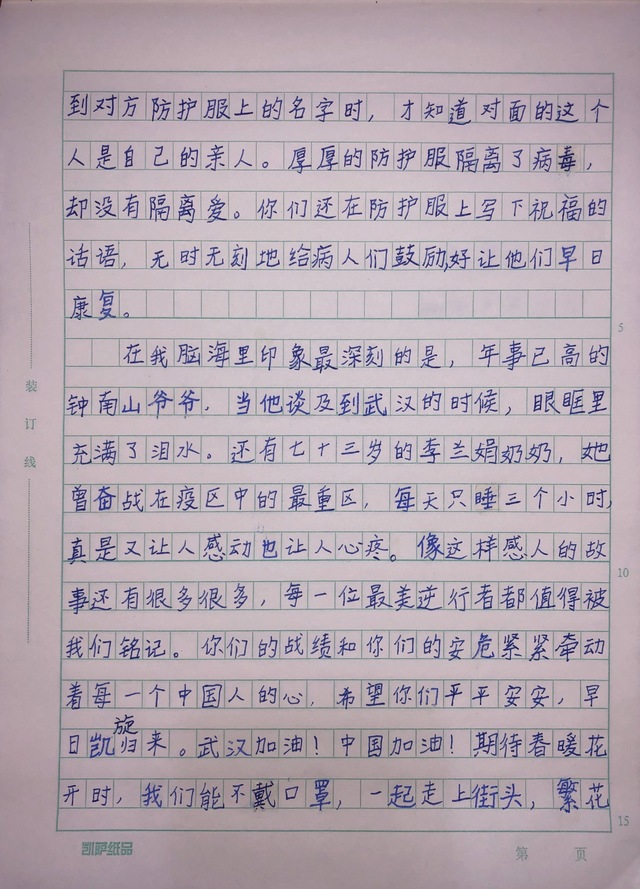 到对方防护服上的名字时，才知道对面的这个
人是自己的亲人。厚厚的防护服隔离了病毒，
却没有隔离爱。你们还在防护服上写下祝福的
话语，无时无刻地给病人们鼓励，好让他们早日
康复。
5
在我脑海里印象最深刻的是，年事已高的
钟南山爷爷，当他谈及到武汉的时候，眼眶里
充满了泪水。还有七十三岁的李兰娟奶奶，她
曾奋战在疫区中的最重区，每天只睡三个小时，
真是又让人感动也让人心疼。像这样感人的故
10
事还有很多很多，每一位最美逆行者都值得被
我们铭记。你们的战绩和你们的安危紧紧牵动
着每一个中国人的心，希望你们平平安安，早
日凯旋归来。武汉加油！中国加油！期待春暖花
开时，我们能不戴口罩，一起走上街头，繁花
15
装订线
凯萨纸品
第 页